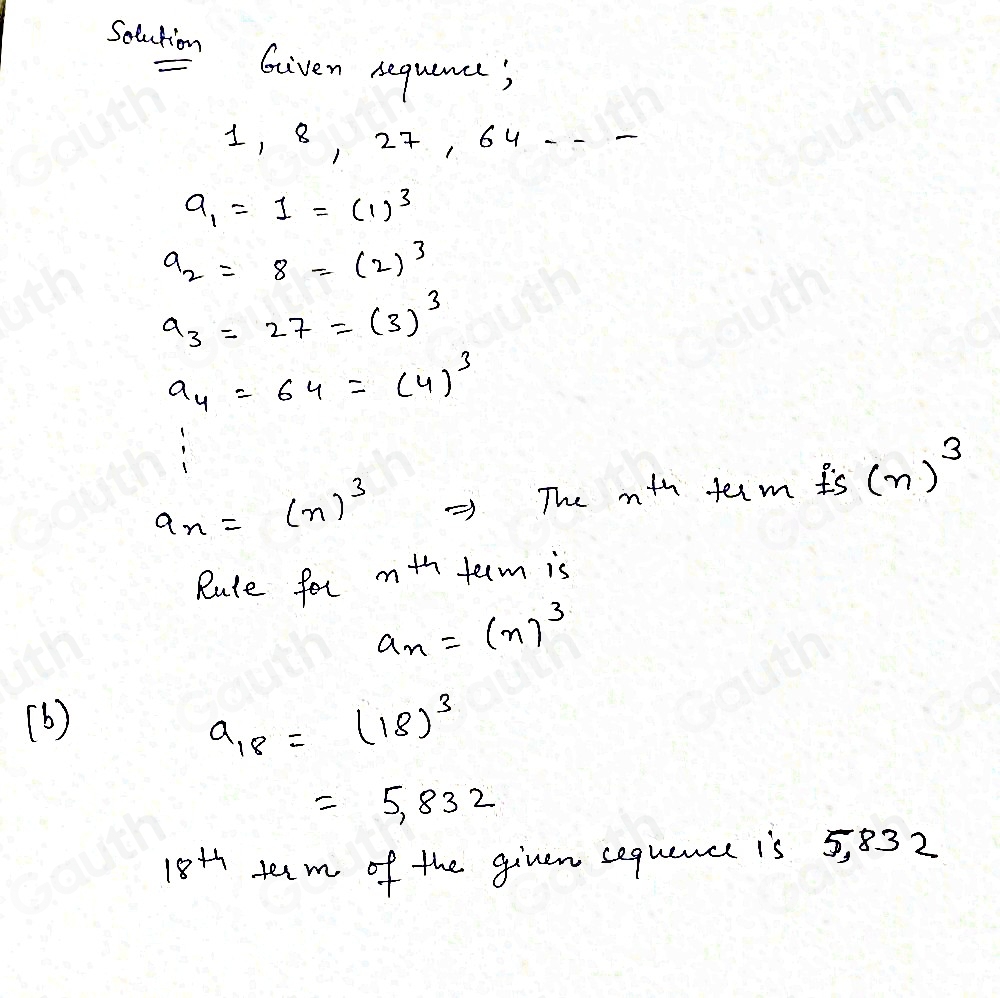 Solution
Given sequence;
1, 8, 27, 64 - - -
a₁ = 1 = (1)³
a₂ = 8 = (2)³
a₃ = 27 = (3)³
a₄ = 64 = (4)³
aₙ = (n)³ ⇒ The nᵗʰ term is (n)³
Rule for nᵗʰ term is
aₙ = (n)³
(b) a₁₈ = (18)³
= 5,832
18ᵗʰ term of the given sequence is 5,832